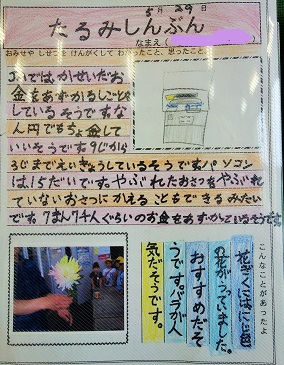 5月29日
たるみしんぶん
なまえ(
おみせや しせつを けんがくして わかったこと、思ったこと
J.A.では、かせいだお
金をあずかるしごとを
しているそうです。な
ん円でもちょ金して
いいそうです。9じから
3じまでえいぎょうしているそうです。パソコン
は、15だいです。やぶれたおさつをやぶれ
ていないおさつにかえることもできるみたい
です。7まん7千人ぐらいのお金をあずかっているそうです。
こんなことがあったよ
花ざくにはにじ色
の花がうっていました。
おすすめだそ
うです。バラが人
気だそうです。